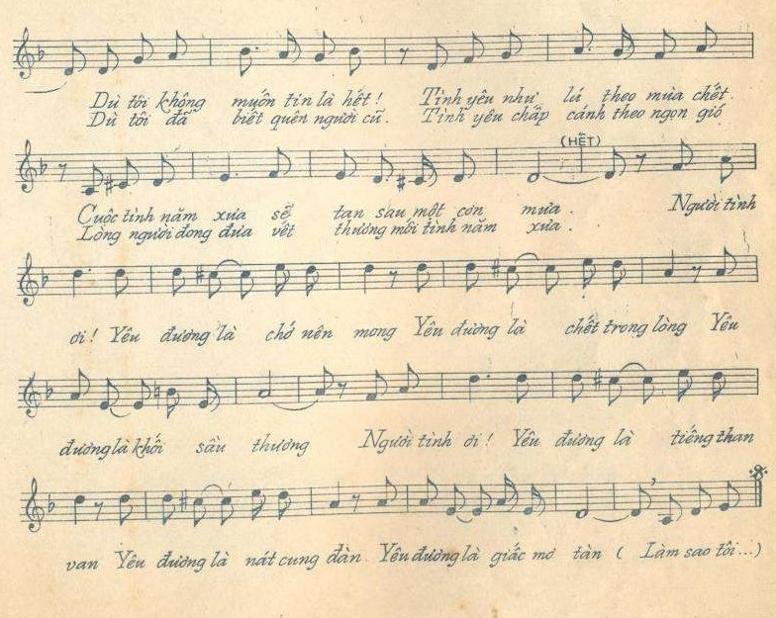 Dù tôi không muốn tin là hết! Tình yêu như lá theo mùa chết.
Dù tôi đã biết quên người cũ. Tình yêu chắp cánh theo ngọn gió
(HẾT)
Cuộc tình năm xưa sẽ tan sau một cơn mưa. Người tình
Lòng người đong đưa vết thương mối tình năm xưa.
ơi! Yêu đương là chớ nên mong Yêu đương là chết trong lòng Yêu
đương là khối sầu thương Người tình ơi! Yêu đương là tiếng than
van Yêu đương là nát cung đàn Yêu đương là giấc mơ tàn ( Làm sao tôi...)